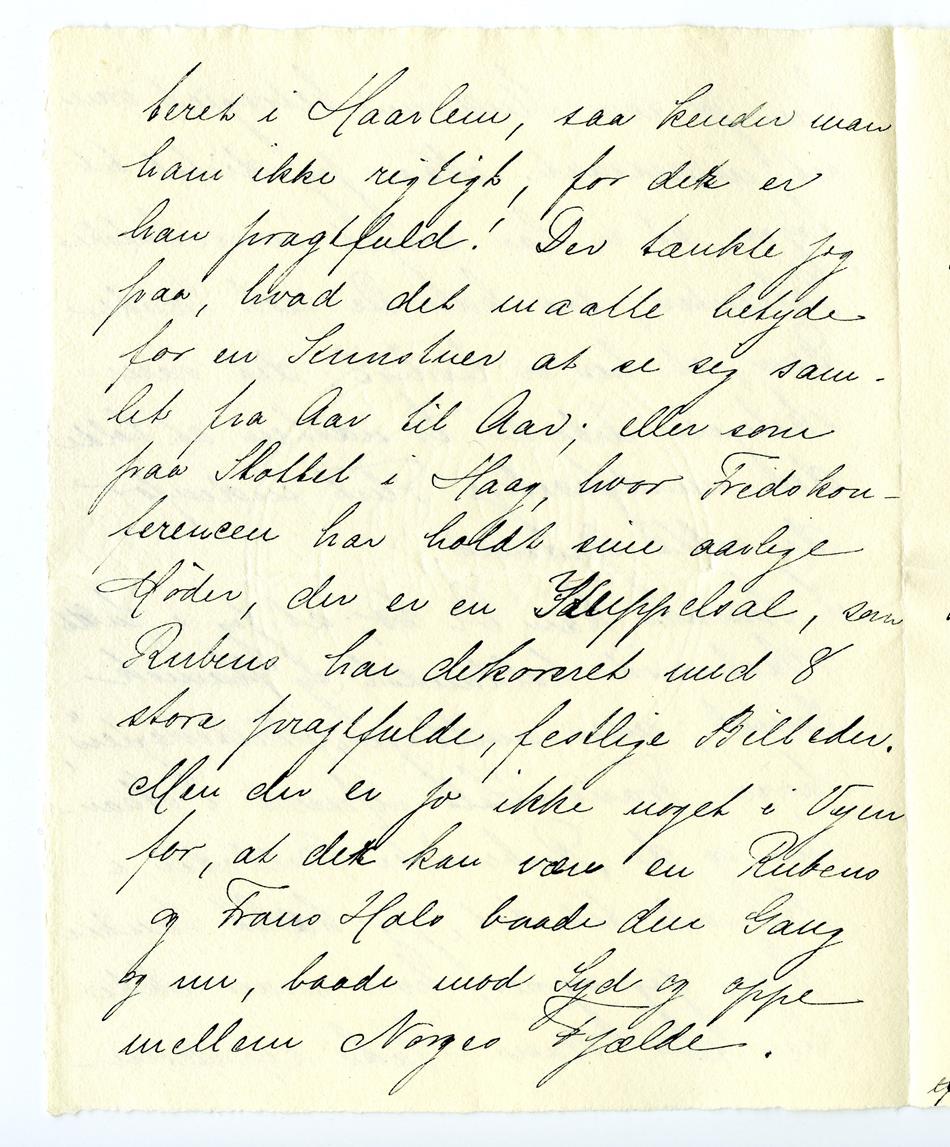 teret i Haarlem, saa kender man
ham ikke rigtigt, for der er
han pragtfuld! Der tænkte jeg
paa, hvad det maatte betyde
for en Kunstner at se sig sam-
let fra Aar til Aar; eller som
paa Slottet i Haag, hvor Fredskon-
ferencen har holdt sine aarlige
Møder, der er en Kuppelsal, som
Rubens har dekoreret med 8
store pragtfulde, festlige Billeder.
Men der er jo ikke noget i Vejen
for, at der kan være en Rubens
og Frans Hals baade den Gang
og nu, baade mod Syd og oppe
mellem Norges Fjælde.